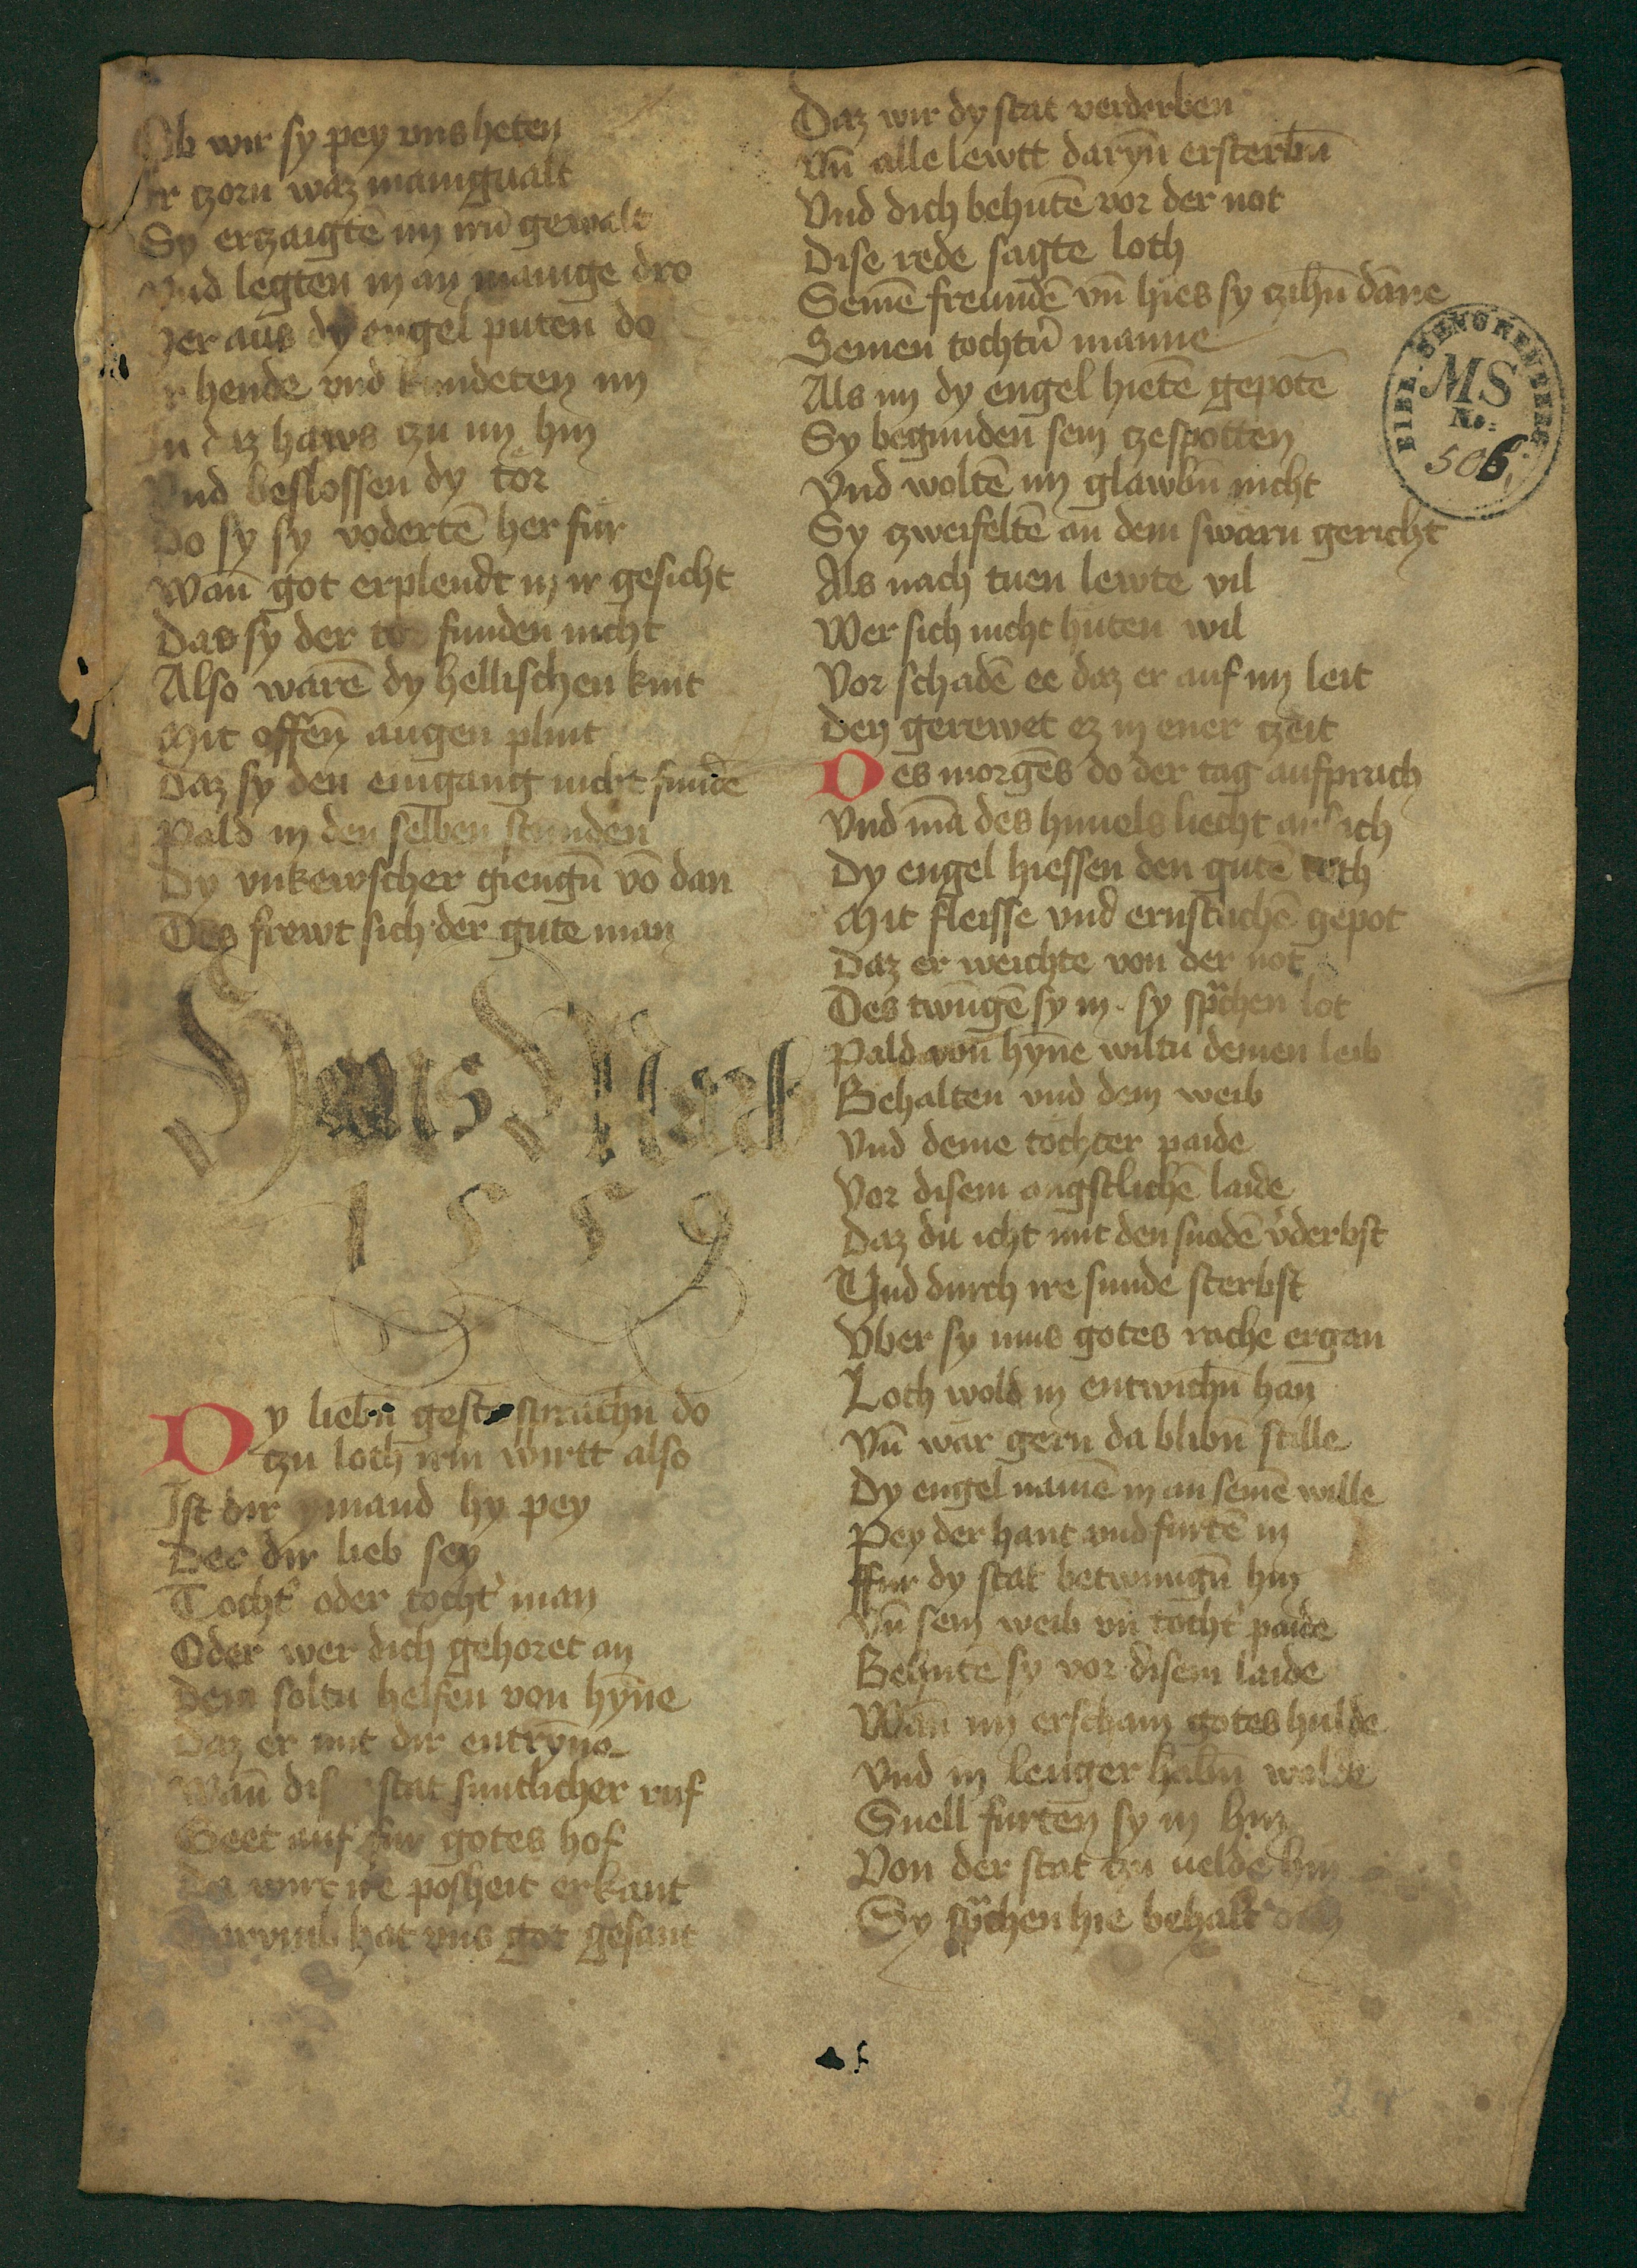 Ob wir sy pey vns heten
Ir czorn waz manigualt
Sy erczaigtē im irn̄ gewalt
Vnd legten in an manige dro
Her aus dy engel puten do
Ir hende vnd kundeten im
In daz haws czu im hin
Vnd beslossen dy tor
Do sy sy vodertē her fur
Wan̄ got erplendt in ir gesicht
Das sy der to funden nicht
Also warē dy hellischen kint
Mit offen̄ augen plint
Daz sy den eingang nicht fundē
Pald in den selben stunden
Dy vnkewscher giengn̄ vō dan
Des frewt sich der gute man
Hans
1559
Dy liebn̄ gest sprachn̄ do
czu loth irm wirtt also
Ist dir ymand hy pey
Der dir lieb sey
Tocht' oder tocht' man
Oder wer dich gehoret an
Dem soltu helfen von hyn̄e
Daz er mit dir entryn̄e
Wan̄ diser stat suntlicher ruf
Geet auf fur gotes hof
Da wirt ire posheit erkant
Darvmb hat vns got gesant
Daz wir dy stat verderben
Vn̄ alle lewtt daryn̄ ersterbn̄
Vnd dich behutē vor der not
Dise rede sagte loth
Seinē freundē vn̄ hies sy czihn̄ dan̄e
Seinen tochtn̄ manne
Als im dy engel hietē gepotē
Sy begunden sein czespotten
Vnd woltē im glawbn̄ nicht
Sy czweifeltē an dem swarn gericht
Als nach tuen lewte vil
Wer sich nicht huten wil
Vor schadē ee daz er auf im leit
Den gerewet ez in ener czeit
Des morgēs do der tag aufprach
Vnd mā des himels liecht ansach
Dy engel hiessen den gutē loth
Mit fleisse vnd ernstlichē gepot
Daz er weichte von der not
Des twūgē sy in. sy sprchen lot
Pald von hyn̄e wiltu deinen leib
Behalten vnd dein weib
Vnd deine tochter paide
Vor disem angstlichē laide
Daz du icht mit den snodē v'derbst
Vnd durch ire sunde sterbst
Vber sy mus gotes rache ergan
Loth wold in entwichn̄ han
Vn̄ war gern da blibn̄ stille
Dy engel namē in an seinē wille
Pey der hant vnd furtē in
ffur dy stat betwungn̄ hin
Vn̄ sein weib vn̄ tocht' paide
Behutē sy vor disem laide
Wan̄ im erschain gotes hulde
Vnd in lenger habn̄ wolde
Snell furten sy in hin
Von der stat czu uelde hin
Sy sprchen hie behalt dich
BIBL. SENCKENBERG.
MS
No:
506.